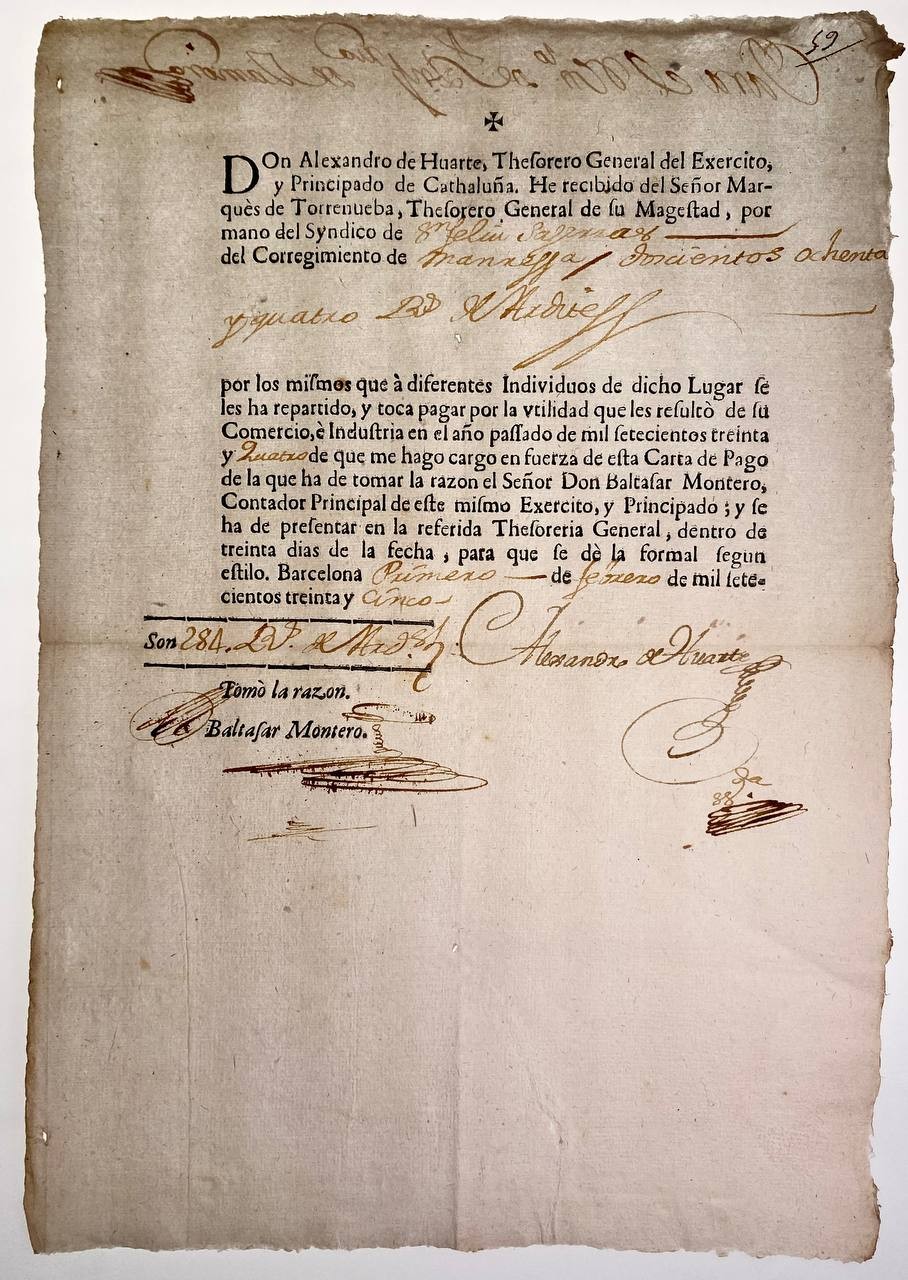 59
✠
DOn Alexandro de Huarte, Theſorero General del Exercito,
y Principado de Cathaluña. He recibido del Señor Mar-
quès de Torrenueba, Theſorero General de ſu Mageſtad, por
mano del Syndico de Sn feliu Saserras
del Corregimiento de Manressa / doscientos ochenta
y quatro Rs. de Ardites
por los miſmos que à diferentes Individuos de dicho Lugar ſe
les ha repartido, y toca pagar por la vtilidad que les reſultò de ſu
Comercio, è Induſtria en el año paſſado de mil ſetecientos treinta
y Quatro de que me hago cargo en fuerza de eſta Carta de Pago
de la que ha de tomar la razon el Señor Don Baltaſar Montero,
Contador Principal de eſte miſmo Exercito, y Principado ; y ſe
ha de preſentar en la referida Theſoreria General, dentro de
treinta dias de la fecha, para que ſe dè la formal ſegun
eſtilo. Barcelona Primero de febrero de mil ſete-
cientos treinta y Cinco
Son 284. Rs. de Ards.
Alexandro de Huarte
Tomò la razon.
Baltaſar Montero.